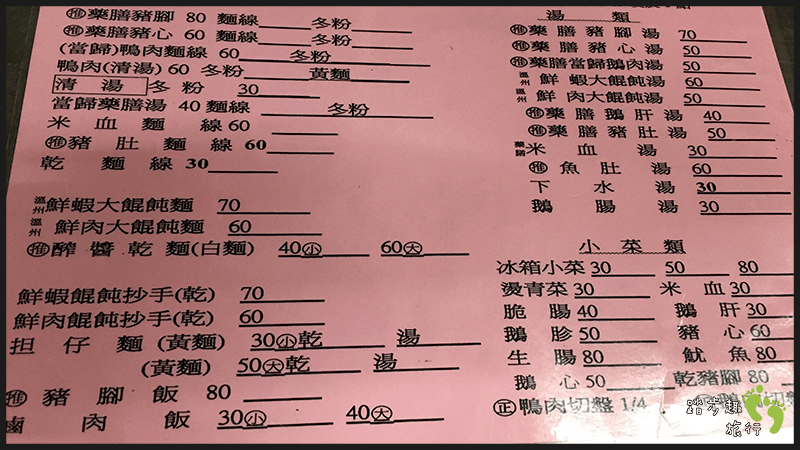 推藥膳豬腳 80 麵線 冬粉
推藥膳豬心 60 麵線 冬粉
(當歸)鴨肉麵線 60 冬粉
鴨肉(清湯) 60 冬粉 黃麵
清湯 冬粉 30
當歸藥膳湯 40 麵線 冬粉
米血麵線 60
推豬肚麵線 60
乾麵線 30
溫州鮮蝦大餛飩麵 70
溫州鮮肉大餛飩麵 60
推醡醬乾麵(白麵) 40小 60大
鮮蝦餛飩抄手(乾) 70
鮮肉餛飩抄手(乾) 60
担仔麵(黃麵) 30小乾 湯
(黃麵) 50大乾 湯
推豬腳飯 80
滷肉飯 30小 40大
湯類
推藥膳豬腳湯 70
推藥膳豬心湯 50
推藥膳當歸鵝肉湯 50
溫州鮮蝦大餛飩湯 60
溫州鮮肉大餛飩湯 50
推藥膳鵝肝湯 40
推藥膳豬肚湯 50
藥膳米血湯 30
推魚肚湯 60
下水湯 30
鵝腸湯 30
小菜類
冰箱小菜 30 50 80
燙青菜 30 米血 30
脆腸 40 鵝肝 30
鵝胗 50 豬心 60
生腸 80 魷魚 80
鵝心 50 乾豬腳 80
正鴨肉切盤 1/4
踏步趣
旅行